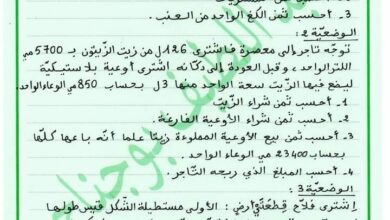 3. أحسب ثمن الكغ الواحد من العنب.
الوضعيّة 2:
توجّه تاجر إلى معصرة فاشترى 126ل من زيت الزّيتون بـ 5700 مي
اللتر الواحد، وقبل العودة إلى دكّانه اشترى أوعية بلاستيكيّة
ليضع فيها الزّيت سعة الواحد منها 3ل بحساب 850 مي الوعاء الواحد.
1- أحسب ثمن شراء الزّيت
2- أحسب ثمن شراء الأوعية الفارغة.
3- أحسب ثمن بيع الأوعية المملوءة زيتا علما أنّه باعها كلّها
بحساب 23400 مي الوعاء الواحد.
4- أحسب المبلغ الذي ربحه التّاجر.
الوضعيّة 3:
إشترى فلّاح قطعتي أرض: الأولى مستطيلة الشّكل قيس طولها